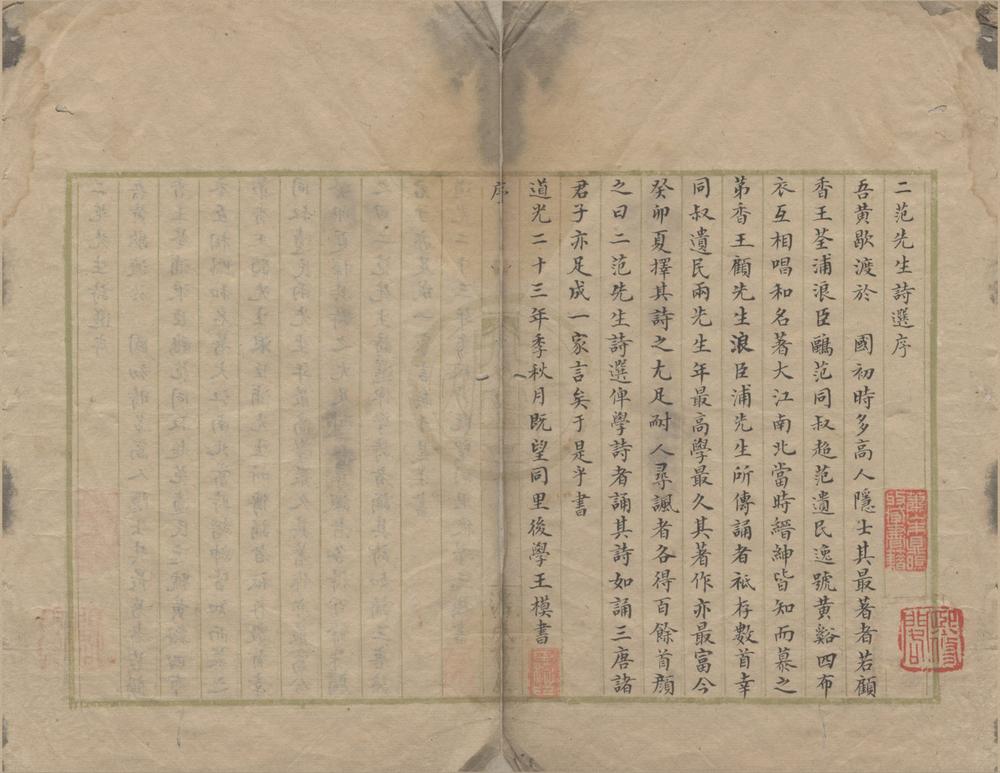 二范先生詩選序
吾黃歇渡於　國初時多高人隱士其最著者若顧
香王荃浦浪臣鷗范同叔超范遺民逸號黃谿四布
衣互相唱和名著大江南北當時縉紳皆知而慕之
第香王顧先生浪臣浦先生所傳誦者祇存數首幸
同叔遺民兩先生年最高學最久其著作亦最富今
癸卯夏擇其詩之尢足耐人尋諷者各得百餘首顏
之曰二范先生詩選俾學詩者誦其詩如誦三唐諸
君子亦足成一家言矣于是乎書
道光二十三年季秋月既望同里後學王模書
序
一